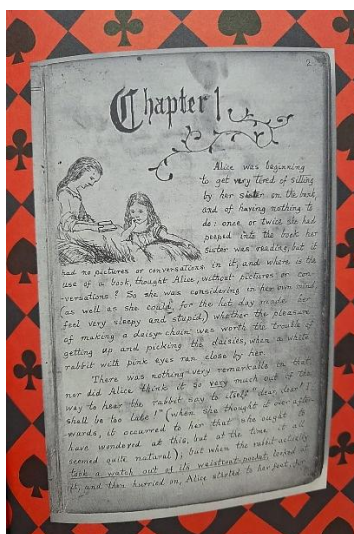 2.
Chapter 1
Alice was beginning
to get very tired of sitting
by her sister on the bank,
and of having nothing to
do: once or twice she had
peeped into the book her
sister was reading, but it
had no pictures or conversations in it, and where is the
use of a book, thought Alice, without pictures or con-
-versations? So she was considering in her own mind,
(as well as she could, for the hot day made her
feel very sleepy and stupid,) whether the pleasure
of making a daisy-chain was worth the trouble of
getting up and picking the daisies, when a white
rabbit with pink eyes ran close by her.
There was nothing very remarkable in that,
nor did Alice think it so very much out of the
way to hear the rabbit say to itself "dear, dear! I
shall be too late!" (when she thought it over after-
wards, it occurred to her that she ought to
have wondered at this, but at the time it all
seemed quite natural); but when the rabbit actually
took a watch out of its waistcoat-pocket, looked at
it, and then hurried on, Alice started to her feet, for